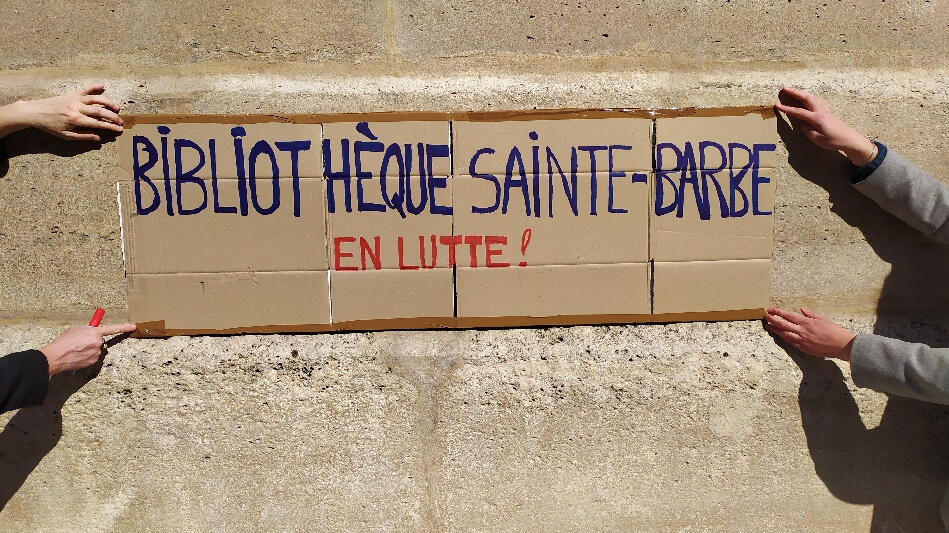 BiBLiOTHÈQUE SAiNTE-BARBE
EN LUTTE!